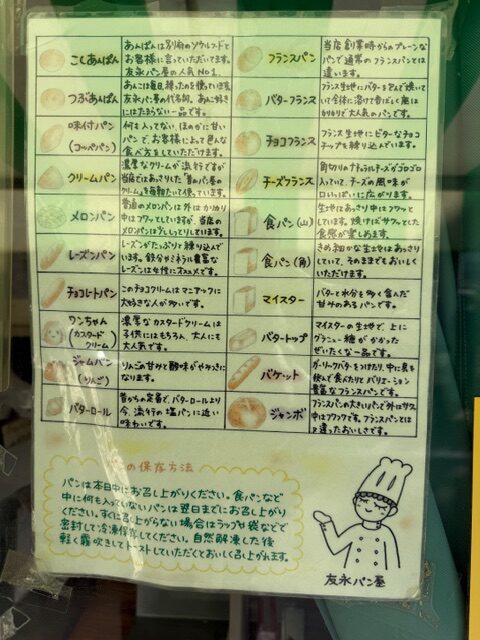 こしあんぱん
あんぱんは別府のソウルフードと
お客様に言っていただいてます。
友永パン屋の人気NO.1.
つぶあんぱん
あんこは毎日、練ったのを使っています。
友永パン屋の代名詞。あんこ好きに
はたまらない一品です。
味付パン
(コッペパン)
何も入ってない、ほのかに甘い
パンで、お客様によって色んな
食べ方をしていただけます。
クリームパン
濃厚なクリームが流行ですが
当店ではあっさりした「昔のパン屋の
クリーム」を毎朝たいて使っています。
メロンパン
普通のメロンパンは外はカリカリ
中はフワッとしていますが、当店の
メロンパンはずっしりしています。
レーズンパン
レーズンがたっぷりと練り込んで
います。鉄分やミネラル豊富な
レーズンは女性にオススメです。
チョコレートパン
このチョコクリームはマニアックに
大好きな人が多いです。
ワンちゃん
(カスタード
クリーム)
濃厚なカスタードクリームは
子供にはもちろん、大人にも
大人気です。
ジャムパン
(りんご)
りんごの甘みと酸味がやみつきに
なります。
バターロール
昔からの定番で、バターロールより
今、流行の塩パンに近い
味わいです。
フランスパン
当店創業時からのプレーンな
パンで通常のフランスパンとは
違います。
バターフランス
フランス生地にバターを包んで焼いて
いて全体に溶けて香ばしく底は
カリカリで大人気のパンです。
チョコフランス
フランス生地にビターなチョコ
チップを練り込んでいます。
チーズフランス
角切りのナチュラルチーズがゴロゴロ
入っていて、チーズの風味が
口いっぱいに広がります。
食パン(山)
生地はあっさり中はフワッと
しています。焼けばサクッとした
食感が楽しめます。
食パン(角)
きめ細かな生地はあっさり
していて、そのままでもおいしく
いただけます。
マイスター
バターと水分を多く含んだ
甘みのあるパンです。
バタートップ
マイスターの生地で、上に
グラニュー糖がかかった
ぜいたくな一品です。
バケット
ガーリックバターをつけたり、中に具を
挟んで食べたりとバリエーション
豊富なフランスパンです。
ジャンボ
フランスパンの大きいパンで外はサクッ
中はフワッです。フランスパンとは
又違ったおいしさです。
の保存方法
パンは本日中にお召し上がりください。食パンなど
中に何も入っていないパンは翌日までにお召し上がり
ください。すぐに召し上がらない場合はラップや袋などで
密封して冷凍保存してください。自然解凍した後
軽く霧吹きしてトーストしていただくとおいしく召し上がれます。
友永パン屋